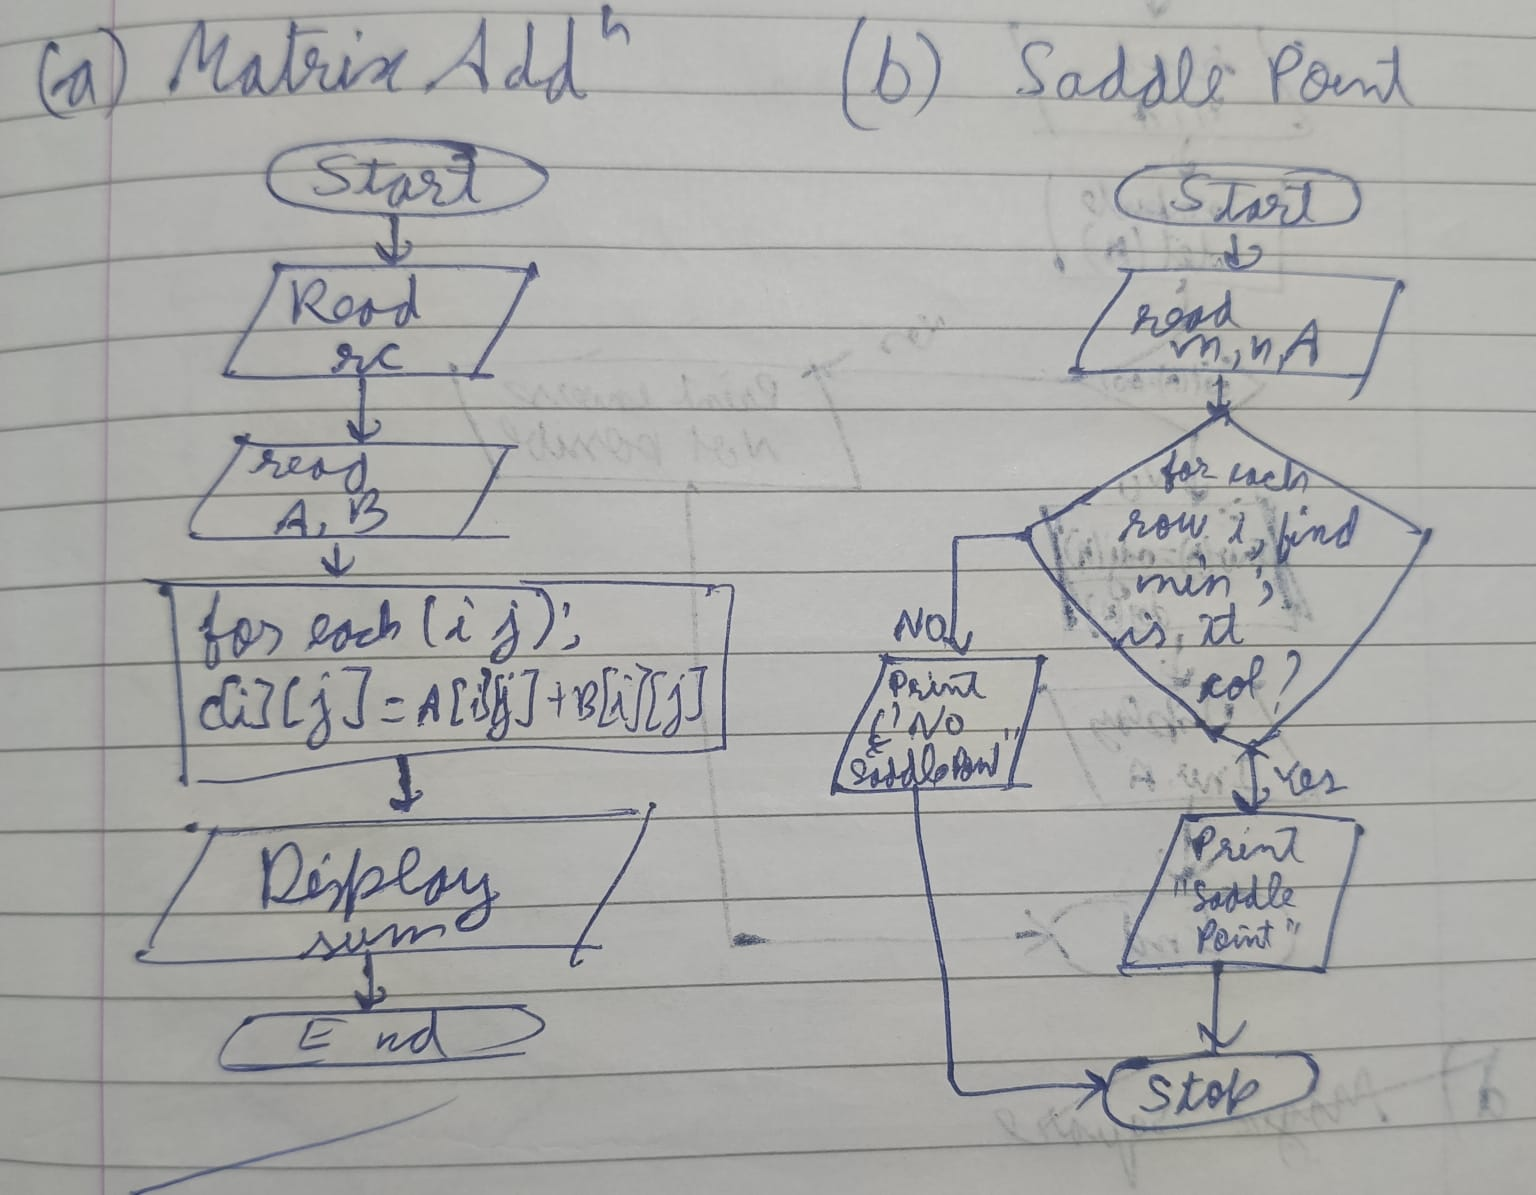 (a) Matrix Addⁿ
Start
Read
rc
read
A, B
for each (i j);
c[i][j] = A[i][j] + B[i][j]
Display
sum
End
(b) Saddle Point
Start
read
m, n, A
for each
row i, find
min;
is it
col?
NO
Print
"No
Saddle Point"
Yes
Print
"Saddle
Point"
Stop